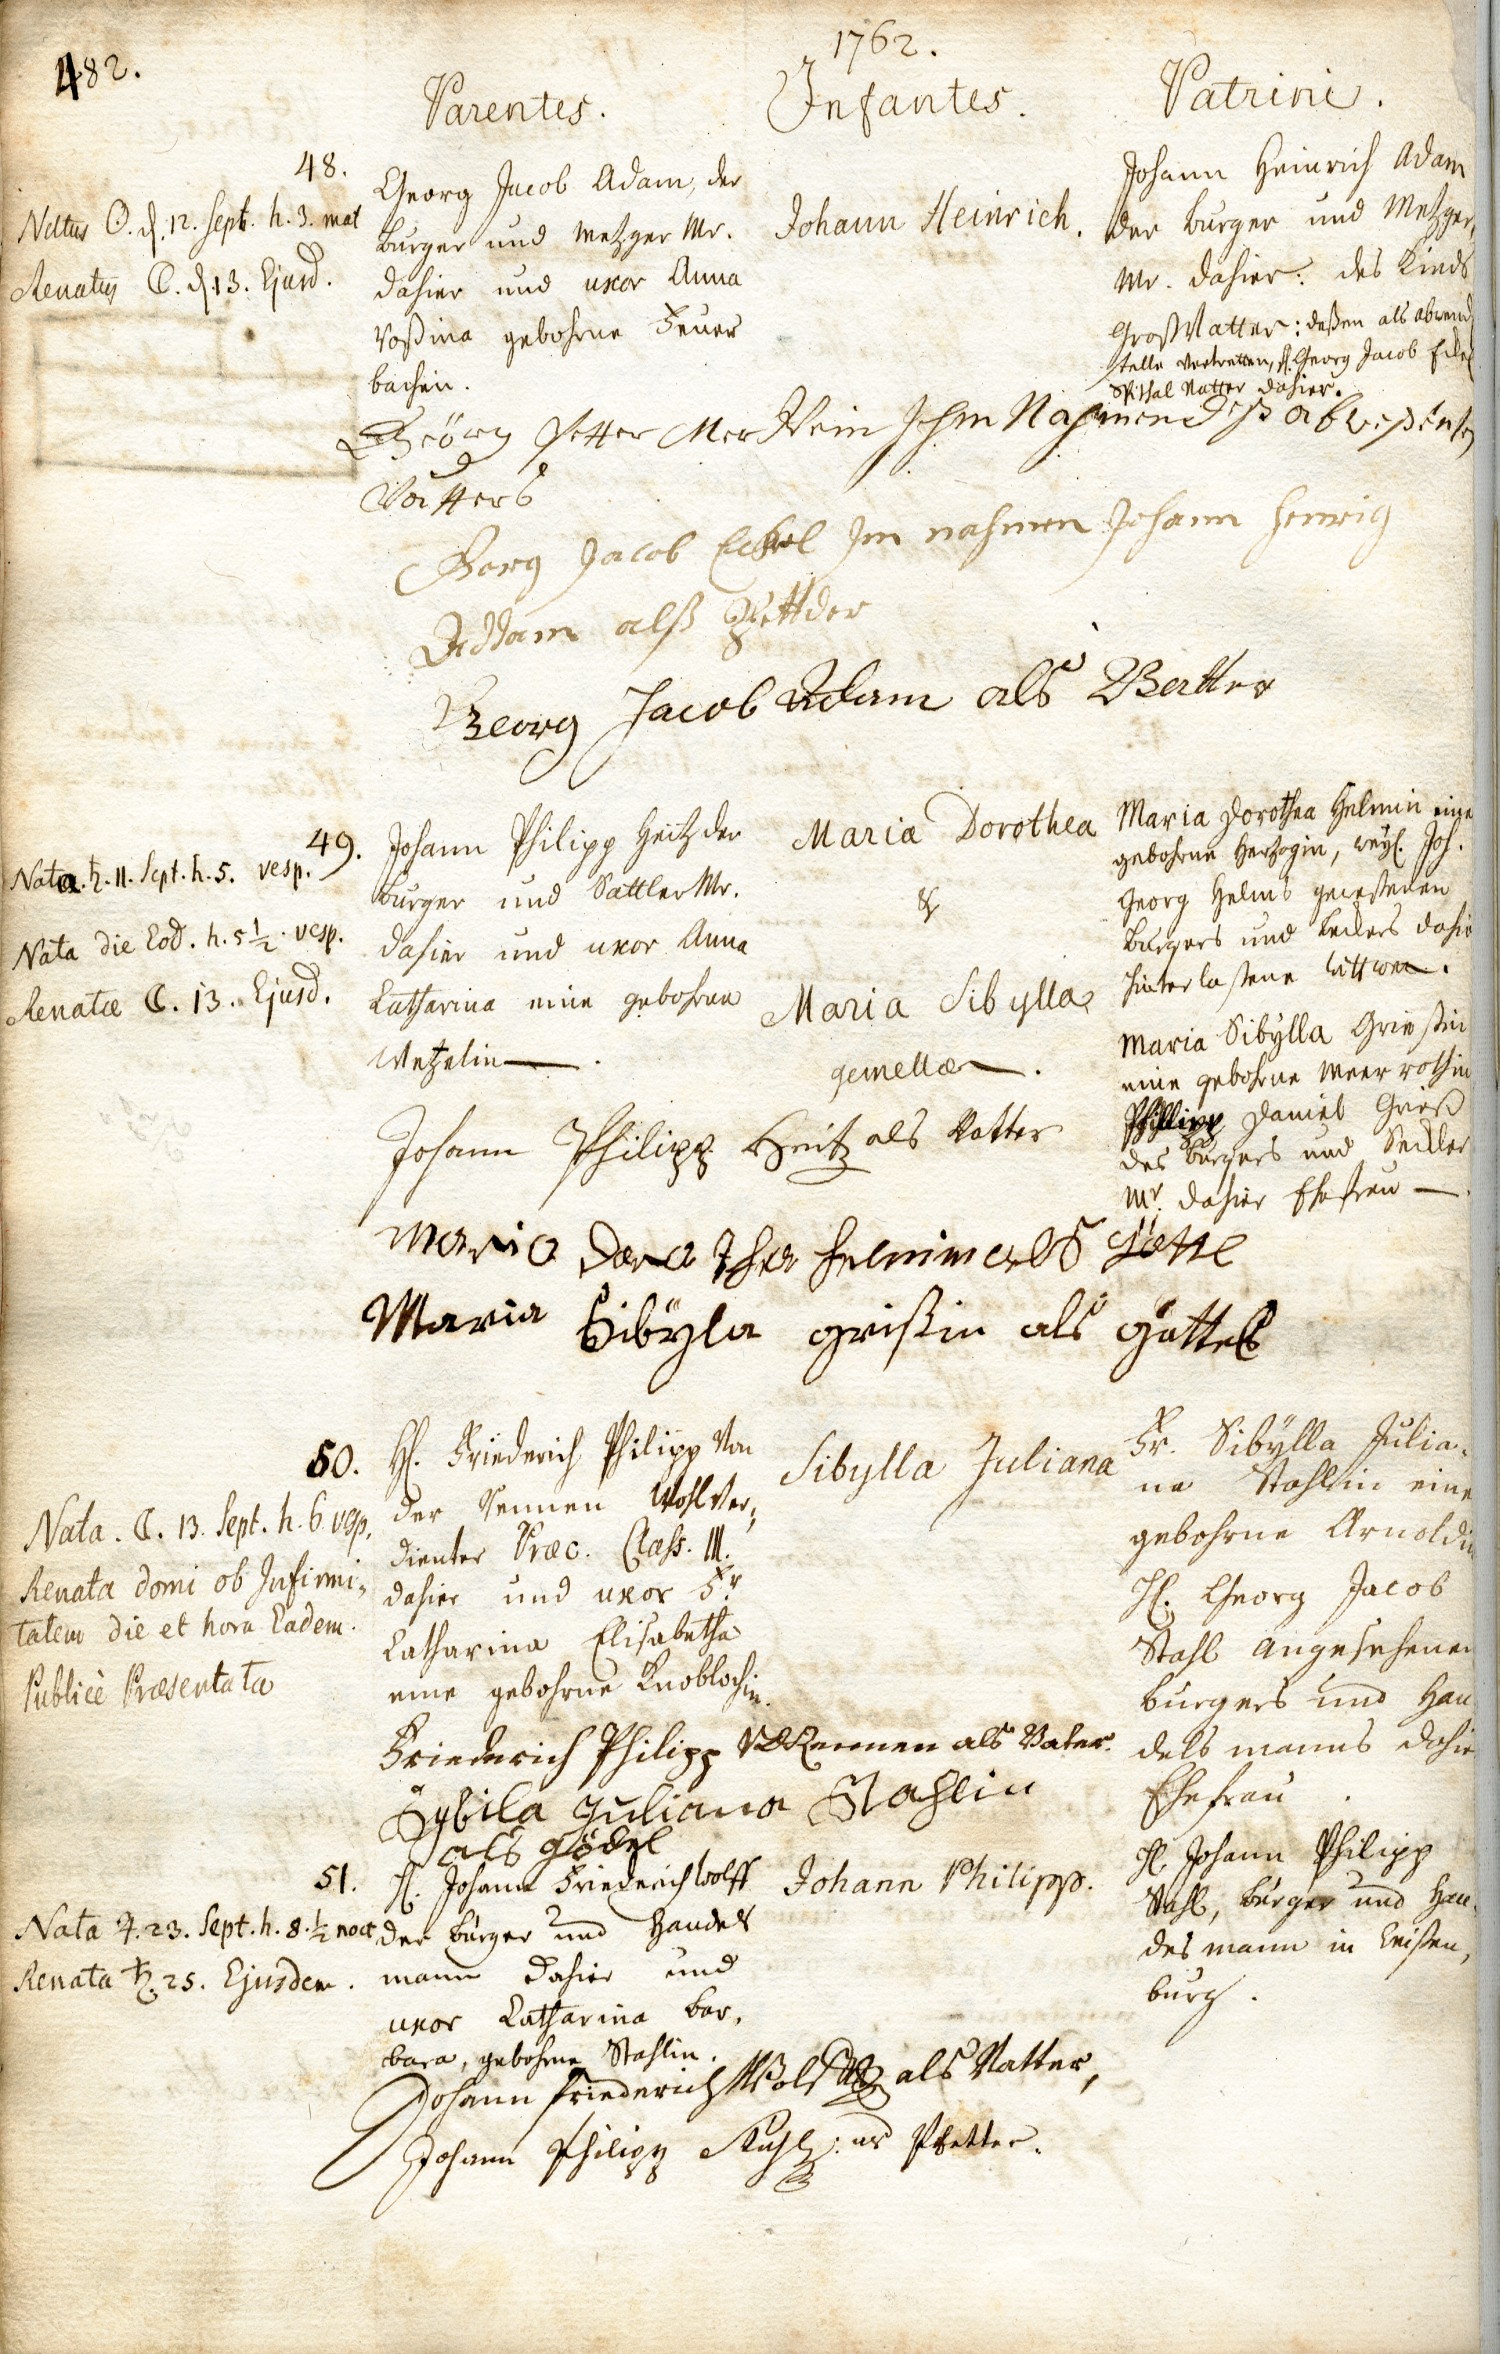 482.
1762.
Parentes. Infantes. Patrini.
48.
Natus ☉. d. 12. Sept. h. 3. mat
Renatus ☾. d. 13. Ejusd.
Georg Jacob Adam, der
burger und Metzger Mr.
dahier und uxor Anna
Roßina gebohrne Feuer
bachin.
Johann Heinrich.
Johann Heinrich Adam
der burger und Metzger,
Mr. dahier: des Kinds
Groß Vatter: deßen als abwend
stelle vertretten, H. Georg Jacob Eckel
Spithal Vatter dahier.
Georg Petter Mer Nein Ihm Nahmen deß abweßenten
Vatters
Georg Jacob Eckel Im nahmen Johann Henrig
Addam alß Pfettder
Georg Jacob Adam als Vatter
49.
Nata ♄. 11. Sept. h. 5. vesp.
Nata die Eod. h. 5 1/2. vesp.
Renatæ ☾. 13. Ejusd.
Johann Philipp Heitz der
burger und Sattler Mr.
dahier und uxor Anna
Catharina eine gebohrne
Wetzelin.
Maria Dorothea
&
Maria Sibylla
gemellæ.
Maria Dorothea Helmin eine
gebohrne Herzogin, weyl. Joh.
Georg Helms geweßenen
burgers und beckers dahie
hinterlaßene Wittwe.
Maria Sibylla Grießin
eine gebohrne Meerrothin
Philipp Daniel Grieß
des burgers und Seckler
Mr. dahier Ehefrau
Johann Philipp Heitz als Vatter
Maria Dorothea helmin als götte
Maria Sibÿla grißin als göttel
50.
Nata. ☾. 13. Sept. h. 6 vesp.
Renata domi ob Infirmi,
tatem die et hora Eadem.
Publicè Præsentata
H. Friederich Philipp Von
der Nennen Wohl Ver,
dienter Præc. Class. III.
dahier und uxor Fr.
Catharina Elisabetha
eine gebohrne Knoblochin.
Sibylla Juliana
Fr. Sibÿlla Julia,
na Stahlin eine
gebohrne Arnoldin
H. Georg Jacob
Stahl angesehenen
burgers und Han
dels manns dahie
Ehefrau.
Friederich Philipp VDNennen als Vater.
Sybila Juliana Stahlin
als gödel
51.
Nata ♃. 23. Sept. h. 8. 1/2 noct
Renata ♄. 25. Ejusdem.
H. Johann Friederich Wolff
der burger und Handels
mann dahier und
uxor Catharina Bar,
bara, gebohrne Stahlin.
Johann Philipp.
H. Johann Philipp
Stahl, burger und Han,
dels mann in Weißen,
burg.
Johann Friederich Wolff als Vatter,
Johann Philipp Stahl: als Pfetter.